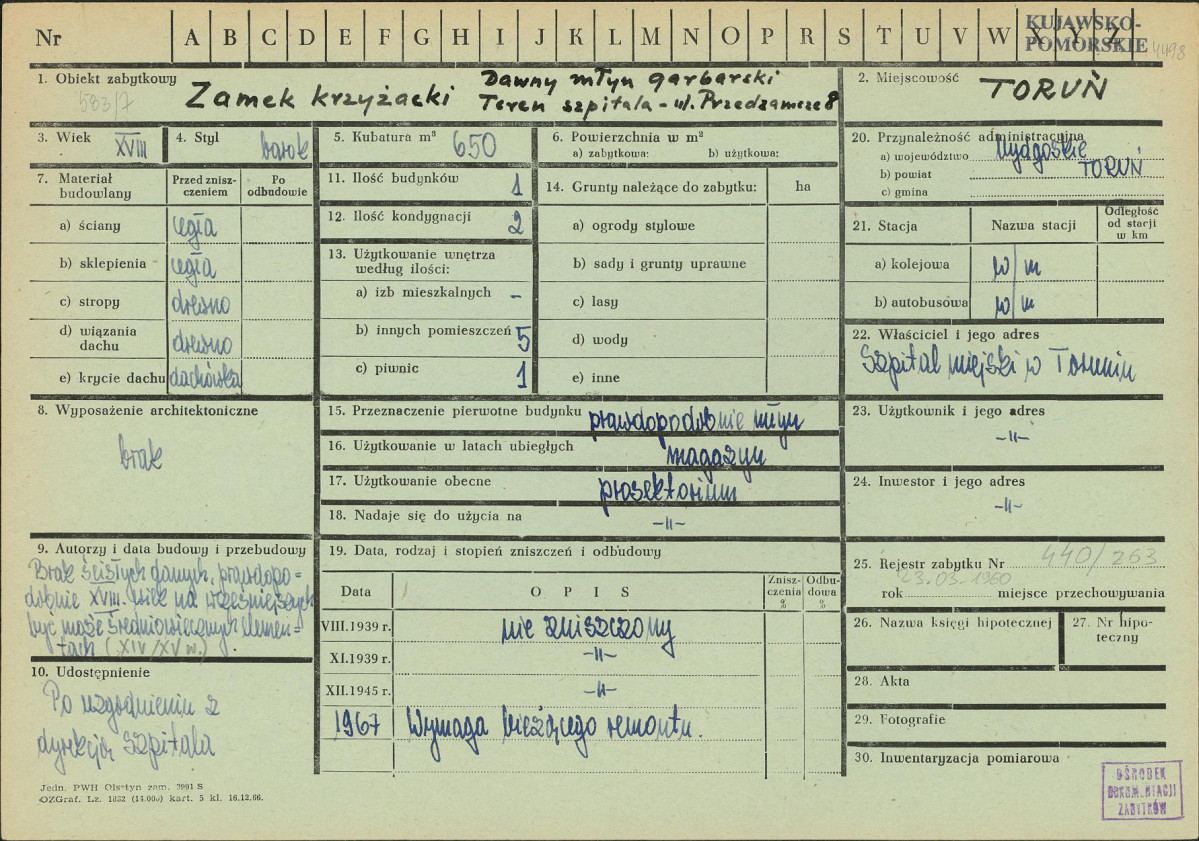 Nr A B C D E F G H I J K L M N O P R S T U V W X Y Z
KUJAWSKO-
POMORSKIE
4498
1. Obiekt zabytkowy
583/7
Zamek krzyżacki
Dawny młyn garbarski
Teren szpitala - ul. Przedzamcze 8
2. Miejscowość
TORUŃ
3. Wiek XVIII
4. Styl barok
5. Kubatura m³ 650
6. Powierzchnia w m²
a) zabytkowa: b) użytkowa:
7. Materiał budowlany
Przed zniszczeniem
Po odbudowie
a) ściany cegła
b) sklepienia cegła
c) stropy drewno
d) wiązania dachu drewno
e) krycie dachu dachówka
8. Wyposażenie architektoniczne
brak
9. Autorzy i data budowy i przebudowy
Brak ścisłych danych, prawdopo-
dobnie XVIII. wiek na wcześniejszych
być może średniowiecznych elemen-
tach (XIV/XV w.).
10. Udostępnienie
Po uzgodnieniu z
dyrekcją szpitala
11. Ilość budynków 1
12. Ilość kondygnacji 2
13. Użytkowanie wnętrza
według ilości:
a) izb mieszkalnych -
b) innych pomieszczeń 5
c) piwnic 1
14. Grunty należące do zabytku: ha
a) ogrody stylowe
b) sady i grunty uprawne
c) lasy
d) wody
e) inne
15. Przeznaczenie pierwotne budynku prawdopodobnie młyn
16. Użytkowanie w latach ubiegłych magazyn
17. Użytkowanie obecne prosektorium
18. Nadaje się do użycia na -"-
19. Data, rodzaj i stopień zniszczeń i odbudowy
Data OPIS Zniszczenia % Odbudowa %
VIII.1939 r. nie zniszczony
XI.1939 r. -"-
XII.1945 r. -"-
1967 Wymaga bieżącego remontu.
20. Przynależność administracyjna
a) województwo bydgoskie
b) powiat TORUŃ
c) gmina
21. Stacja Nazwa stacji Odległość od stacji w km
a) kolejowa w/m
b) autobusowa w/m
22. Właściciel i jego adres
Szpital miejski w Toruniu
23. Użytkownik i jego adres
-"-
24. Inwestor i jego adres
-"-
25. Rejestr zabytku Nr 440/263
23.03-1960
rok miejsce przechowywania
26. Nazwa księgi hipotecznej
27. Nr hipoteczny
28. Akta
29. Fotografie
30. Inwentaryzacja pomiarowa
OŚRODEK
DOKUMENTACJI
ZABYTKÓW
Jedn. PWH Olsztyn zam. 3991 S
OZGraf. Lz. 1832 (14.000) kart. 5 kl. 16.12.66.